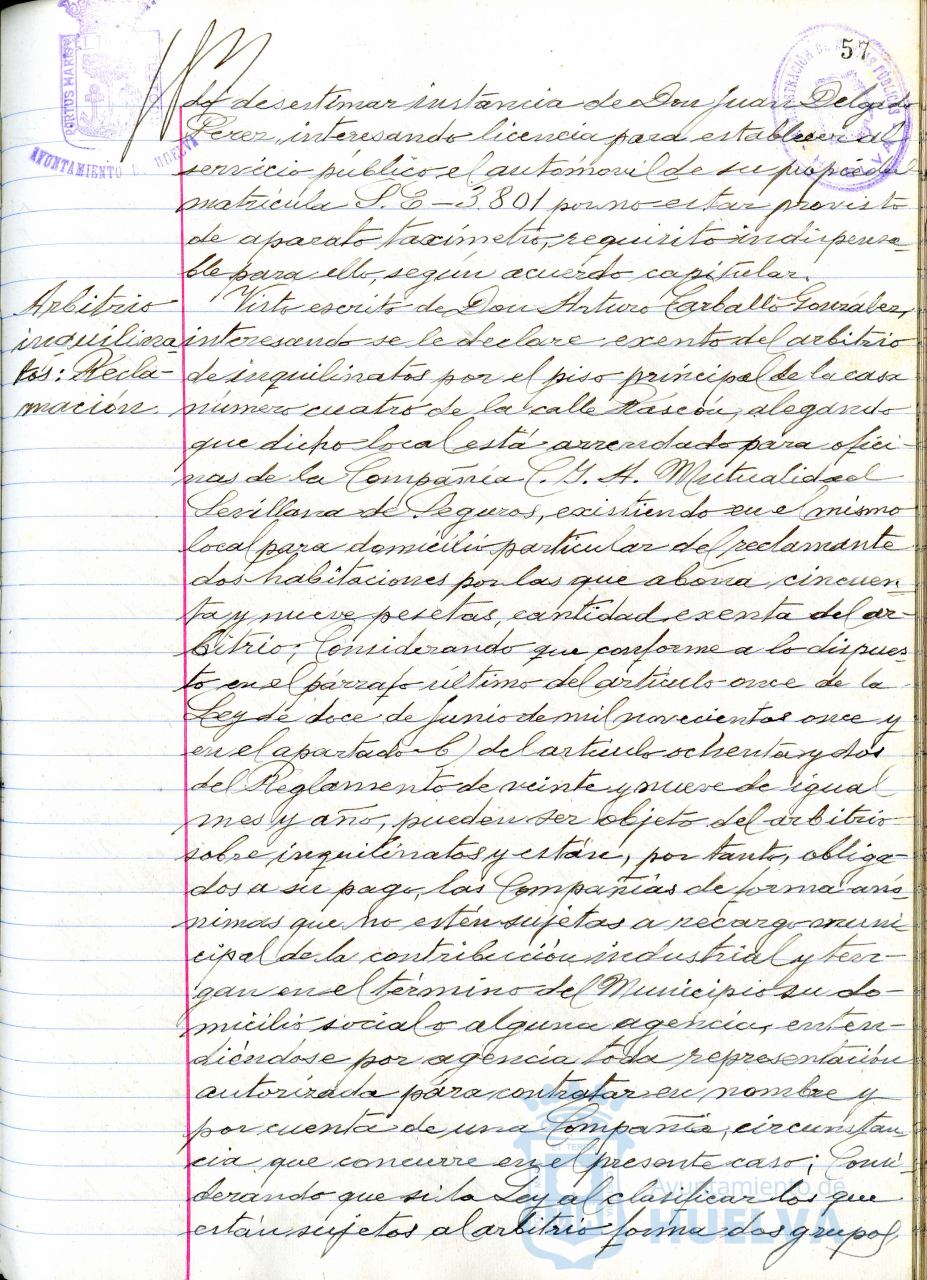 57
PORTUS MARIS
AYUNTAMIENTO DE HUELVA
dó desestimar instancia de Don Juan Delgado
Pérez, interesando licencia para establecer al
servicio público el automóvil de su propiedad
matrícula S.E-3.801 por no estar provisto
de aparato taxímetro, requisito indispensa-
ble para ello, según acuerdo capitular.
Arbitrio
inquilina-
tos: Recla-
mación.
Visto escrito de Don Arturo Carballo Gonzalez,
interesando se le declare exento del arbitrio
de inquilinatos por el piso principal de la casa
número cuatro de la calle Rascón, alegando
que dicho local está arrendado para ofici-
nas de la Compañía C. y A. Mutualidad
Sevillana de Seguros, existiendo en el mismo
local para domicilio particular del reclamante
dos habitaciones por las que abona cincuen-
ta y nueve pesetas, cantidad exenta del ar-
bitrio; Considerando que conforme a lo dispues-
to en el párrafo último del artículo once de la
Ley de doce de Junio de mil novecientos once y
en el apartado b) del artículo ochenta y dos
del Reglamento de veinte y nueve de igual
mes y año, pueden ser objeto del arbitrio
sobre inquilinatos y están, por tanto, obliga-
dos a su pago, las Compañías de forma anó-
nimas que no estén sujetas a recargo muni-
cipal de la contribución industrial y ten-
gan en el término del Municipio su do-
micilio social o alguna agencia, enten-
diéndose por agencia toda representación
autorizada para contratar en nombre y
por cuenta de una Compañía, circunstan-
cia que concurre en el presente caso; Consi-
derando que si la Ley al clasificar los que
están sujetos al arbitrio forma dos grupos
Ayuntamiento de
HUELVA